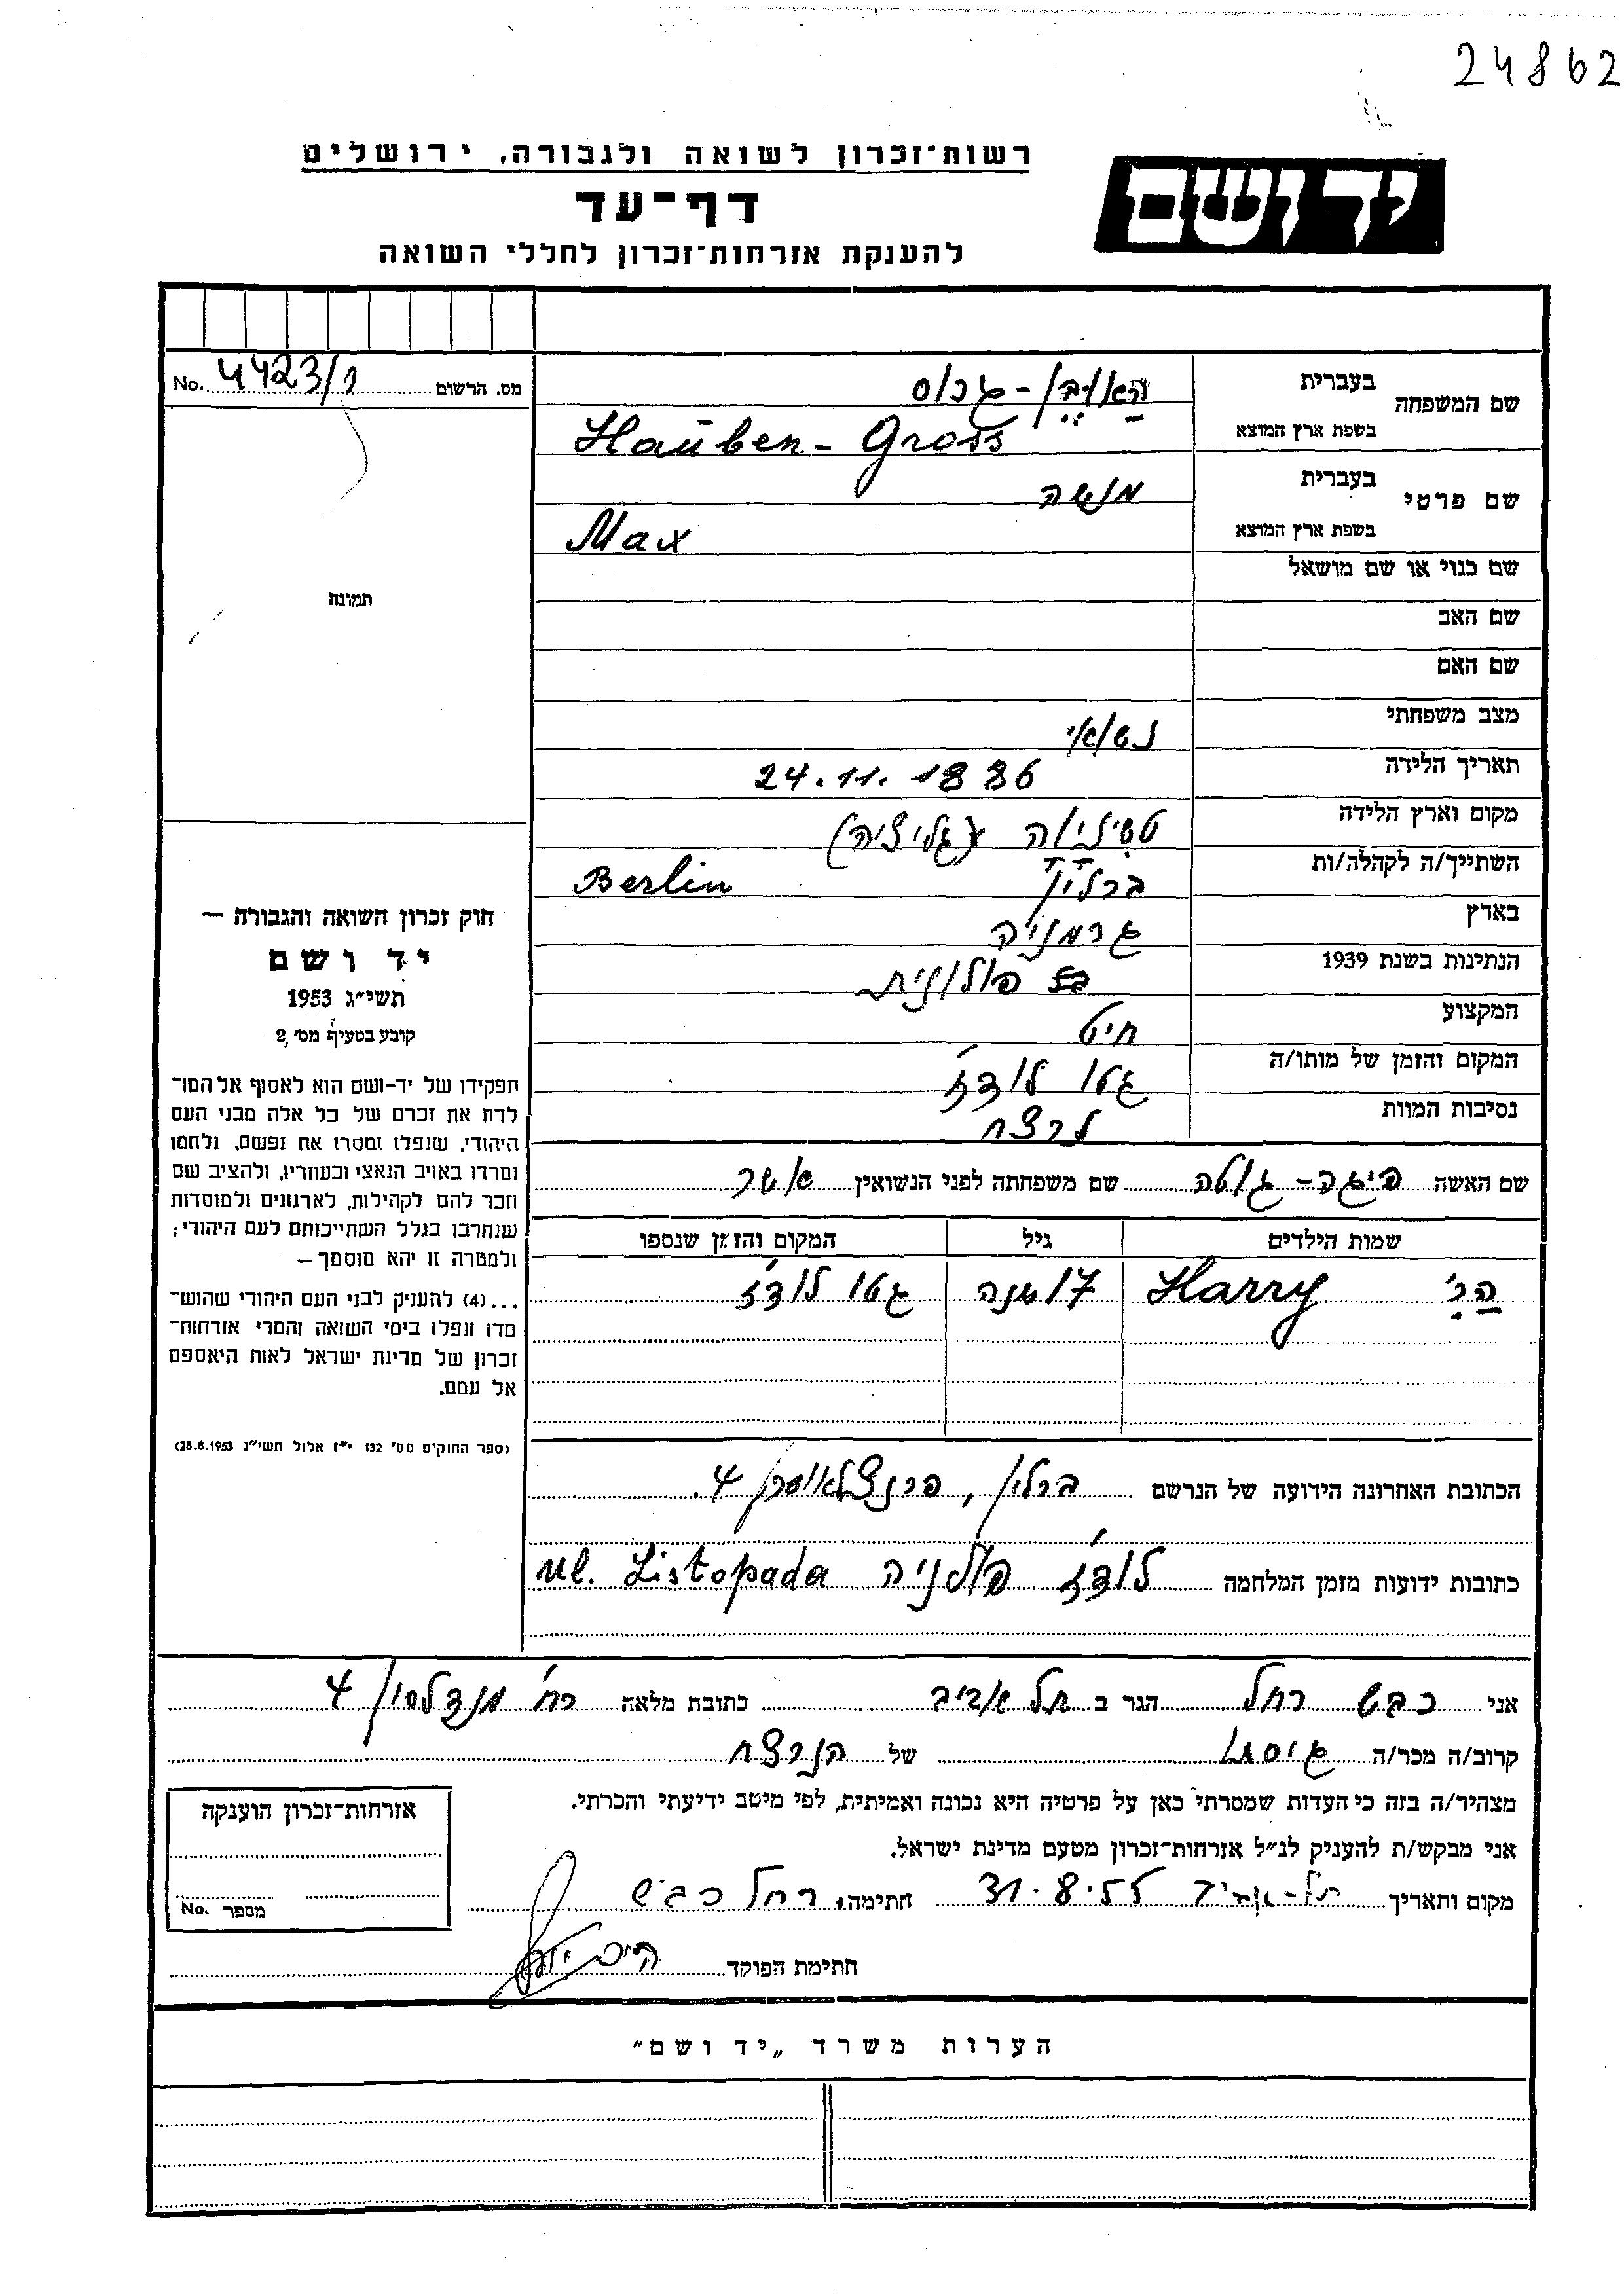 24862
רשות־זכרון לשואה ולגבורה, ירושלים
יד ושם
דף־עד
להענקת אזרחות־זכרון לחללי השואה
מס. הרשום 4423/1 No.
שם המשפחה
בעברית האובן - גרוס
בשפת ארץ המוצא Hauben - Gross
שם פרטי
בעברית משה
בשפת ארץ המוצא Max
שם כנוי או שם מושאל
שם האב
שם האם
מצב משפחתי נשואי
תאריך הלידה 24.11.1886
מקום וארץ הלידה (גליציה)
השתייך/ה לקהלה/ות ברלין Berlin
בארץ גרמניה
הנתינות בשנת 1939 פולונית
המקצוע חיט
המקום והזמן של מותו/ה גטו לודז'
נסיבות המוות נרצח
שם האשה פיגה - גוטה שם משפחתה לפני הנשואין
שמות הילדים גיל המקום והזמן שנספו
הרי Harry 17 שנה גטו לודז'
הכתובת האחרונה הידועה של הנרשם ברלין, 4.
כתובות ידועות מזמן המלחמה לודז' פולניה ul. Listopada
תמונה
חוק זכרון השואה והגבורה —
יד ושם
תשי״ג 1953
קובע בסעיף מס׳ 2,
תפקידו של יד-ושם הוא לאסוף אל המו־
לדת את זכרם של כל אלה מבני העם
היהודי, שנפלו ומסרו את נפשם, נלחמו
ומרדו באויב הנאצי ובעוזריו, ולהציב שם
וזכר להם לקהילות, לארגונים ולמוסדות
שנחרבו בגלל השתייכותם לעם היהודי;
ולמטרה זו יהא מוסמך —
...(4) להעניק לבני העם היהודי שהוש־
מדו ונפלו בימי השואה והמרי אזרחות־
זכרון של מדינת ישראל לאות היאספם
אל עמם.
(ספר החוקים מס׳ 132 י״ז אלול תשי״ג 28.8.1953)
אני כבש רחל הגר ב תל אביב כתובת מלאה רח' מנדלסון 4
קרוב/ה מכר/ה גיסתו של הנרצח
מצהיר/ה בזה כי העדות שמסרתי כאן על פרטיה היא נכונה ואמיתית, לפי מיטב ידיעתי והכרתי.
אני מבקש/ת להעניק לנ״ל אזרחות־זכרון מטעם מדינת ישראל.
מקום ותאריך תל-אביב 31.8.55 חתימה רחל כבש
חתימת הפוקד
אזרחות־זכרון הוענקה
מספר No.
הערות משרד „יד ושם״